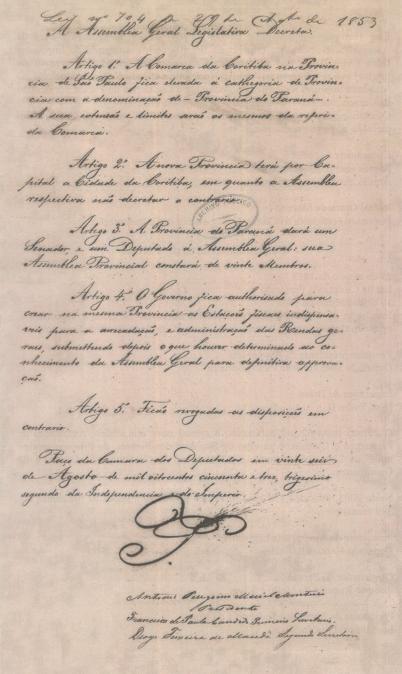 Ley nº 704 de 29 de Agto de 1853
A Assemblea Geral Legislativa Decreta.
Artigo 1º A Comarca da Coritiba na Provin-
cia de São Paulo fica elevada á cathegoria de Provin-
cia com a denominação de - Provincia do Paraná -.
A sua extensão e limites serão os mesmos da referi-
da Comarca.
Artigo 2º A nova Provincia terá por Ca-
pital a Cidade da Coritiba, em quanto a Assemblea
respectiva não decretar o contrario.
ARCHIVO PUBLICO
Artigo 3º A Provincia do Paraná dará um
Senador, e um Deputado á Assemblea Geral: sua
Assemblea Provincial constará de vinte Membros.
Artigo 4º O Governo fica authorisado para
crear na mesma Provincia as Estações fiscaes indispensa-
veis para a arrecadação, e administração das Rendas ge-
raes, submettendo depois o que houver determinado ao co-
nhecimento da Assemblea Geral para definitiva approva-
ção.
Artigo 5º Ficão revogadas as disposições em
contrario.
Paço da Camara dos Deputados em vinte seis
de Agosto de mil oitocentos cincoenta e tres, trigesimo
segundo da Independencia e do Imperio.
Antonio Peregrino Maciel Monteiro
Presidente
Francisco de Paula Candido Primeiro Secretario.
Diogo Teixeira de Macedo Segundo Secretario